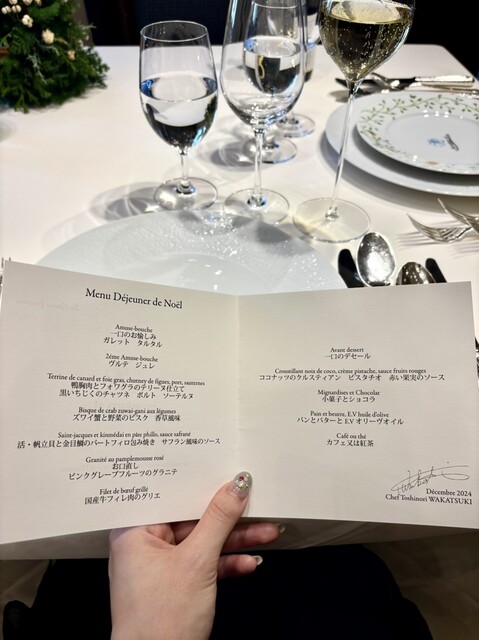 Menu Déjeuner de Noël
Amuse-bouche
一口のお愉しみ
ガレット タルタル
2éme Amuse-bouche
ヴルテ ジュレ
Terrine de canard et foie gras, chutney de figues, port, sauternes
鴨胸肉とフォワグラのテリーヌ仕立て
黒いちじくのチャツネ ポルト ソーテルヌ
Bisque de crab zuwai-gani aux légumes
ズワイ蟹と野菜のビスク 香草風味
Saint-jacques et kinmédai en pâte phillo, sauce safrané
活・帆立貝と金目鯛のパートフィロ包み焼き サフラン風味のソース
Granité au pamplemousse rosé
お口直し
ピンクグレープフルーツのグラニテ
Filet de bœuf grillé
国産牛フィレ肉のグリエ
Avant dessert
一口のデセール
Croustillant noix de coco, crème pistache, sauce fruits rouges
ココナッツのクルスティアン ピスタチオ 赤い果実のソース
Mignardises et Chocolat
小菓子とショコラ
Pain et beurre, E.V huile d'olive
パンとバターと E.V オリーヴオイル
Café ou thé
カフェ又は紅茶
Décembre 2024
Chef Toshinori WAKATSUKI